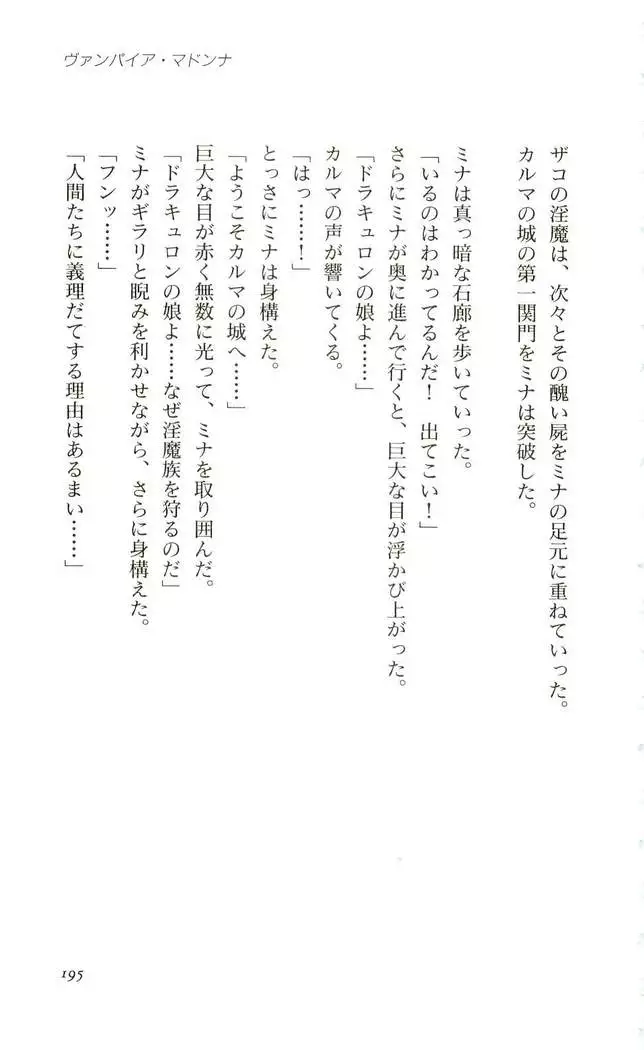 ヴァンパイア・マドンナ
ザコの淫魔は、次々とその醜い屍をミナの足元に重ねていった。
カルマの城の第一関門をミナは突破した。
ミナは真っ暗な石廊を歩いていった。
「いるのはわかってるんだ！　出てこい！」
さらにミナが奥に進んで行くと、巨大な目が浮かび上がった。
「ドラキュロンの娘よ……」
カルマの声が響いてくる。
「はっ……！」
とっさにミナは身構えた。
「ようこそカルマの城へ……」
巨大な目が赤く無数に光って、ミナを取り囲んだ。
「ドラキュロンの娘よ……なぜ淫魔族を狩るのだ」
ミナがギラリと睨みを利かせながら、さらに身構えた。
「フンッ……」
「人間たちに義理だてする理由はあるまい……」
195